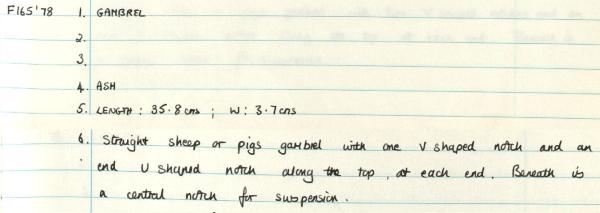 F165'78 1. GAMBREL
2.
3.
4. ASH
5. LENGTH : 35.8cms ; W: 3.7cms
6. Straight sheep or pigs gambrel with one V shaped notch and an
end U shaped notch along the top, at each end. Beneath is
a central notch for suspension.